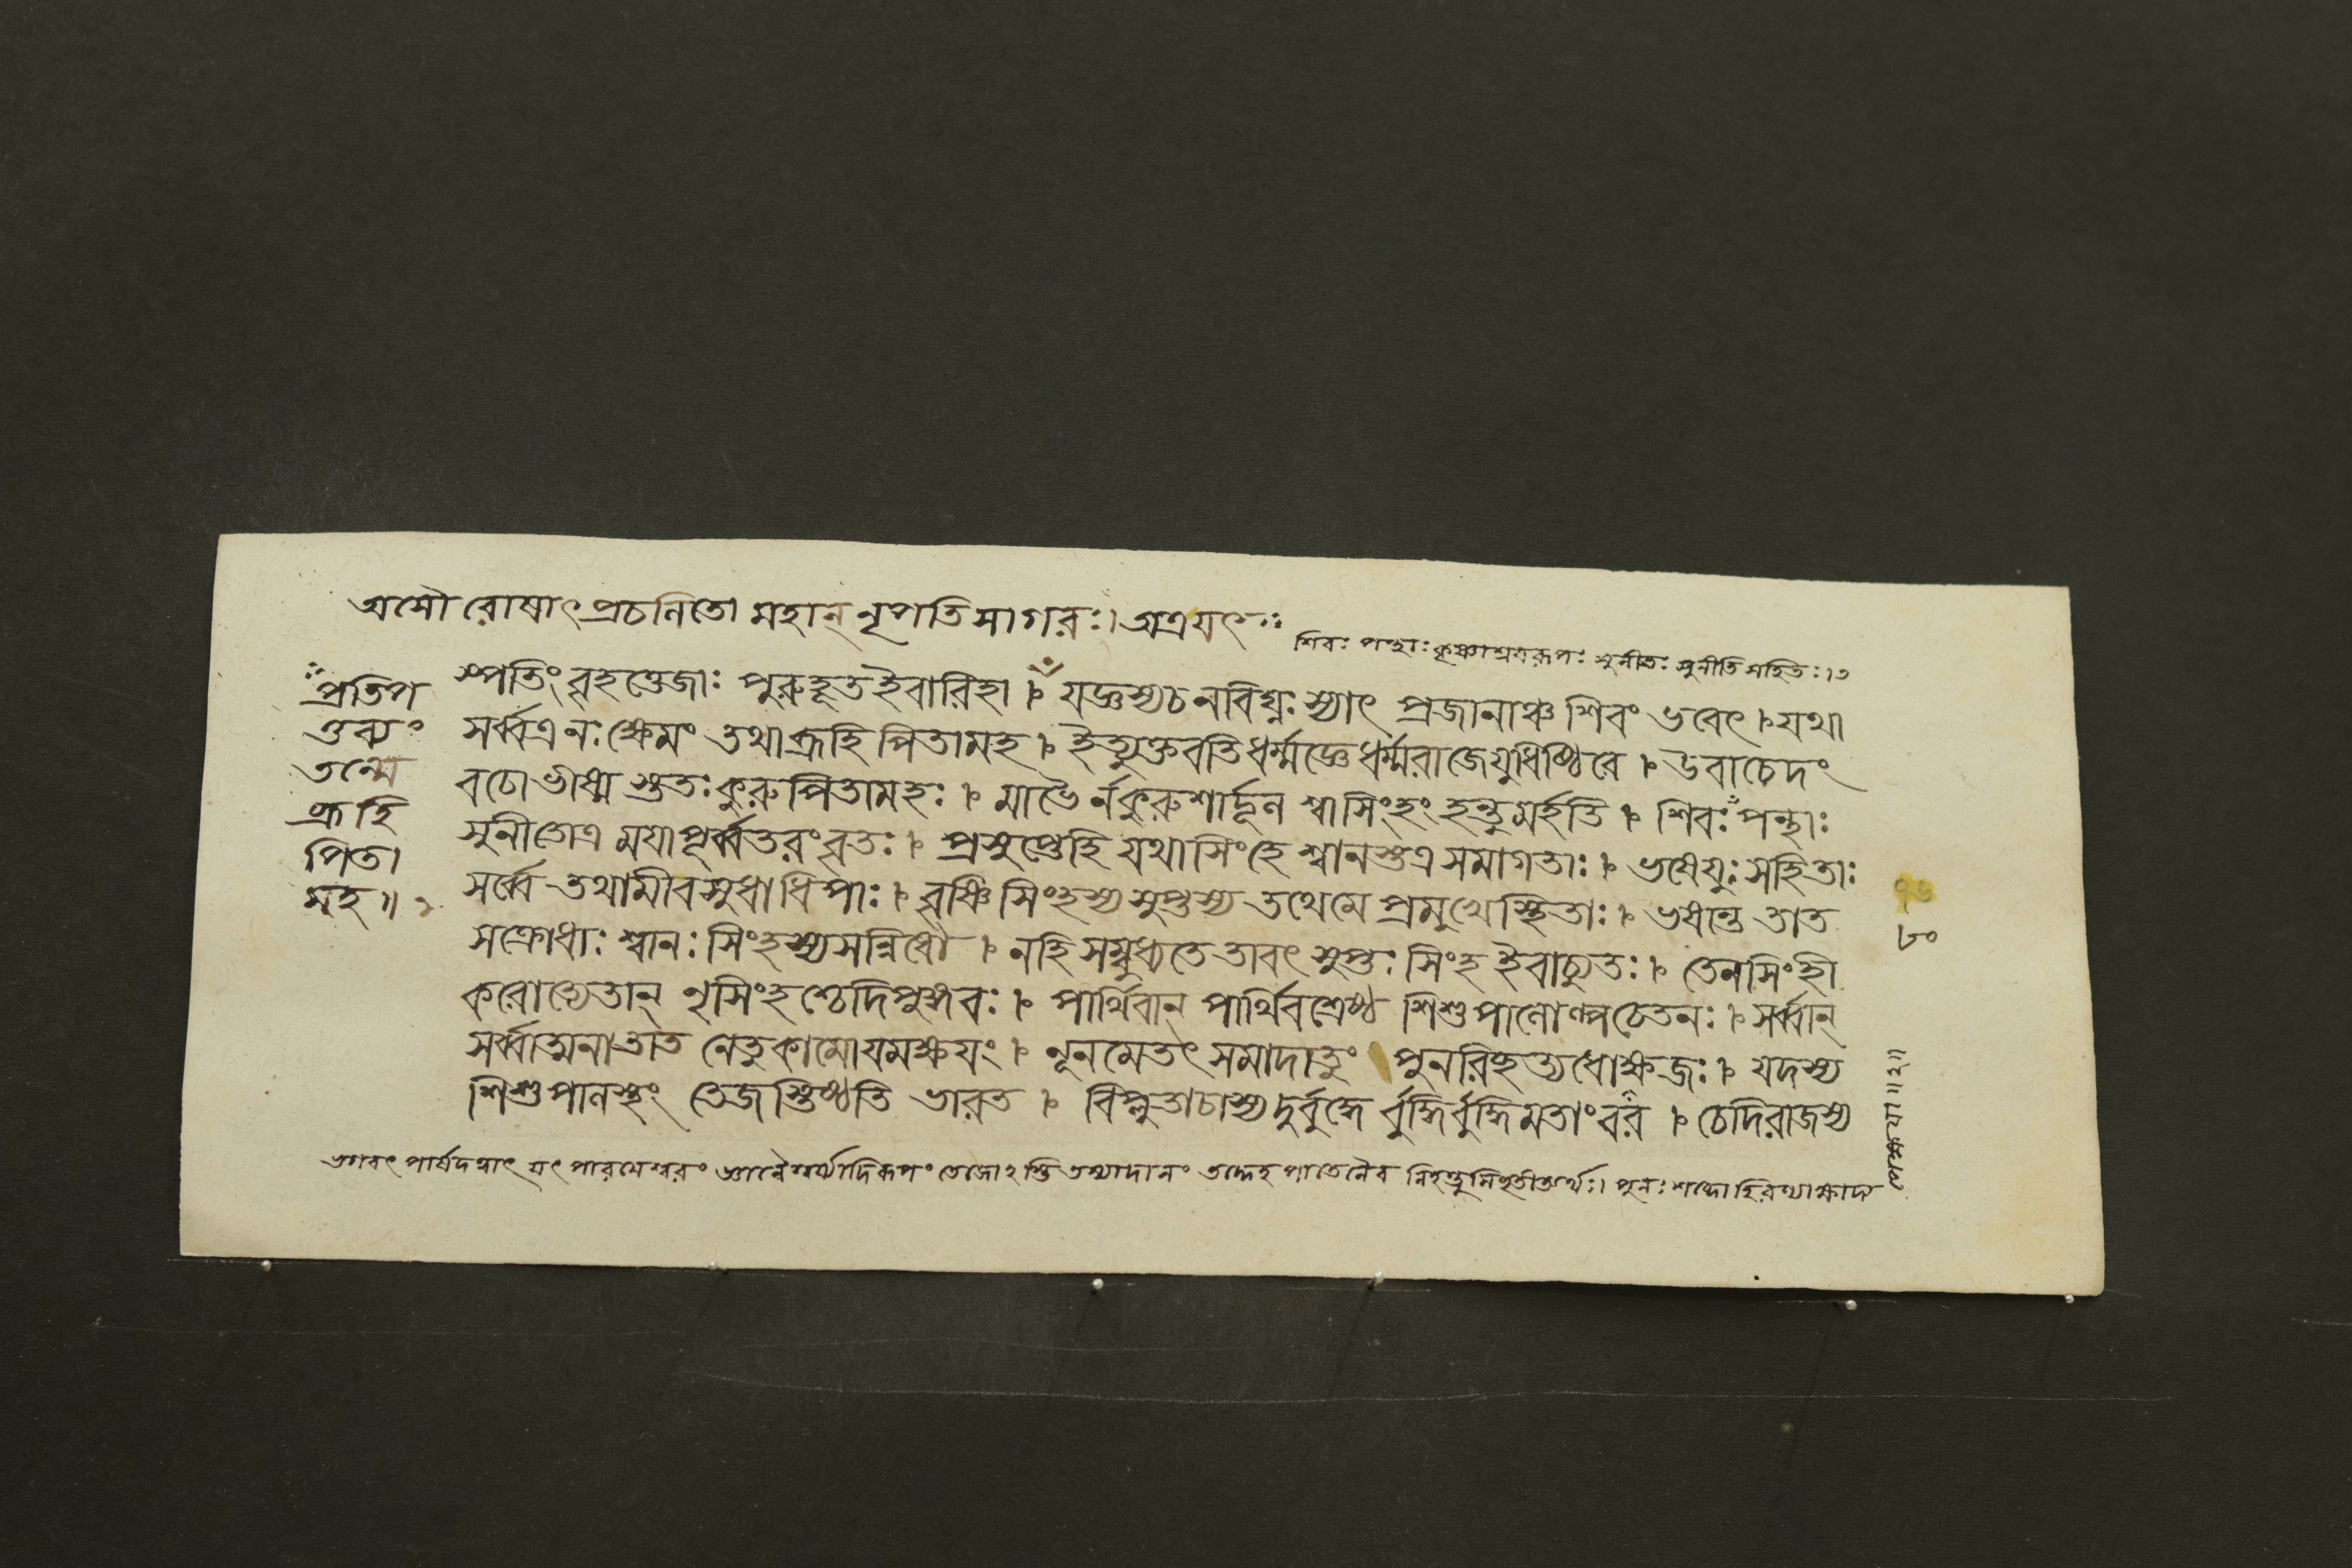 অসৌ রোষাৎ প্রচলিতো মহান্ নৃপতিসাগরঃ। অত্র যৎ
শিবঃ পন্থাঃ কৃষ্ণাশ্রয়রূপঃ সুনীতঃ সুনীতিসহিতঃ। ৩
স্পতিং বৃহত্তেজাঃ পুরুহূত ইবারিহা। যজ্ঞস্য চ ন বিঘ্নঃ স্যাৎ প্রজানাঞ্চ শিবং ভবেৎ। যথা
সর্ব্বত্র নঃ ক্ষেমং তথা ব্রূহি পিতামহ। ইত্যুক্তবতি ধর্ম্মজ্ঞে ধর্ম্মরাজে যুধিষ্ঠিরে। উবাচেদং
বচো ভীষ্ম স্ততঃ কুরুপিতামহঃ। মাভৈ র্নকুরুশার্দ্দূল শ্বা সিংহং হন্তুমর্হতি। শিবঃ পন্থাঃ
সুনীতোত্র ময়া পূর্ব্বতরং বৃতঃ। প্রসুপ্তেহি যথা সিংহে শ্বানস্তত্র সমাগতাঃ। ভষেযুঃ সহিতাঃ
সর্ব্বে তথামী বসুধাধিপাঃ। বৃষ্ণিসিংহস্য সুপ্তস্য তথেমে প্রমুখে স্থিতাঃ। ভষন্তে তাত
সংক্রোধাঃ শ্বানঃ সিংহস্য সন্নিধৌ। নহি সম্বুধ্যতে তাবৎ সুপ্তঃ সিংহ ইবাচ্যুতঃ। তেন সিংহী
করোত্যেতান্ নৃসিংহশ্চেদিপুঙ্গবঃ। পার্থিবান্ পার্থিবশ্রেষ্ঠ শিশুপালোল্পচেতনঃ। সর্ব্বান্
সর্ব্বাত্মনা তাত নেতুকামো যমক্ষয়ং। নূনমেতৎ সমাদাতুং পুনরিচ্ছত্যধোক্ষজঃ। যদস্য
শিশুপালস্থং তেজস্তিষ্ঠতি ভারত। বিপ্লুতা চাস্য দুর্বুদ্ধে র্বুদ্ধির্বুদ্ধিমতাং বর। চেদিরাজস্য
প্রতিপ
ত্তব্যং
তন্মে
ব্রূহি
পিতা
মহ॥ ২
৮০
ভগবৎপার্ষদত্বাৎ যৎ পারমেশ্বরং জ্ঞানৈশ্বর্য্যাদিরূপং তেজোঽস্তি তস্যাদানং তদ্দেহপাতেনৈব পুনঃ শব্দো